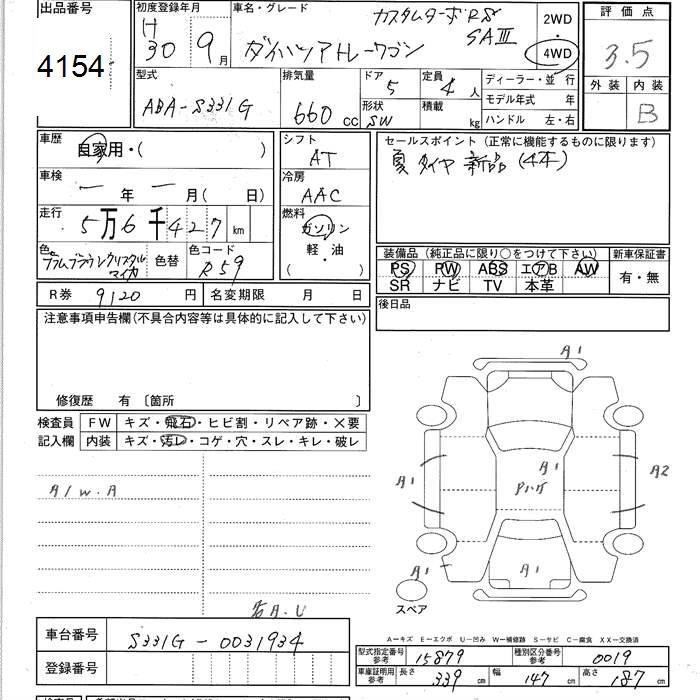 出品番号
4154
初度登録年月
H
30 9月
車名・グレード
カスタムターボRS
SAⅢ
ダイハツアトレーワゴン
2WD
・
4WD
評価点
3.5
外装 内装
B
型式
ABA-S331G
排気量
660 cc
ドア
5
定員
4 人
形状
SW
積載
kg
ディーラー・並行
モデル年式 年
ハンドル 左・右
車歴
自家用・( )
車検
一年一月(日)
走行
5万6千427km
色
プラムブラウンクリスタル
マイカ
色替
色コード
R59
シフト
AT
冷房
AAC
燃料
ガソリン
軽・油
( ・ )
セールスポイント(正常に機能するものに限ります)
夏タイヤ 新品(4本)
装備品(純正品に限り○をつけて下さい)
PS PW ABS エアB AW
SR ナビ TV 本革
新車保証書
有・無
R券 9120 円 名変期限 月 日
後日品
注意事項申告欄(不具合内容等は具体的に記入して下さい)
修復歴 有 〔箇所 〕
検査員
記入欄
FW キズ・飛石・ヒビ割・リペア跡・×要
内装 キズ・汚レ・コゲ・穴・スレ・キレ・破レ
A/W.A
A1
A1
A1
A2
A1
A1
スペア
A-キズ E-エクボ U-凹み W-補修跡 S-サビ C-腐食 XX-交換済
車台番号
S331G-0031934
登録番号
型式指定番号
参考
15879
種別区分番号
参考
0019
車庫証明用
参考
長さ 339 cm
幅 147 cm
高さ 187 cm